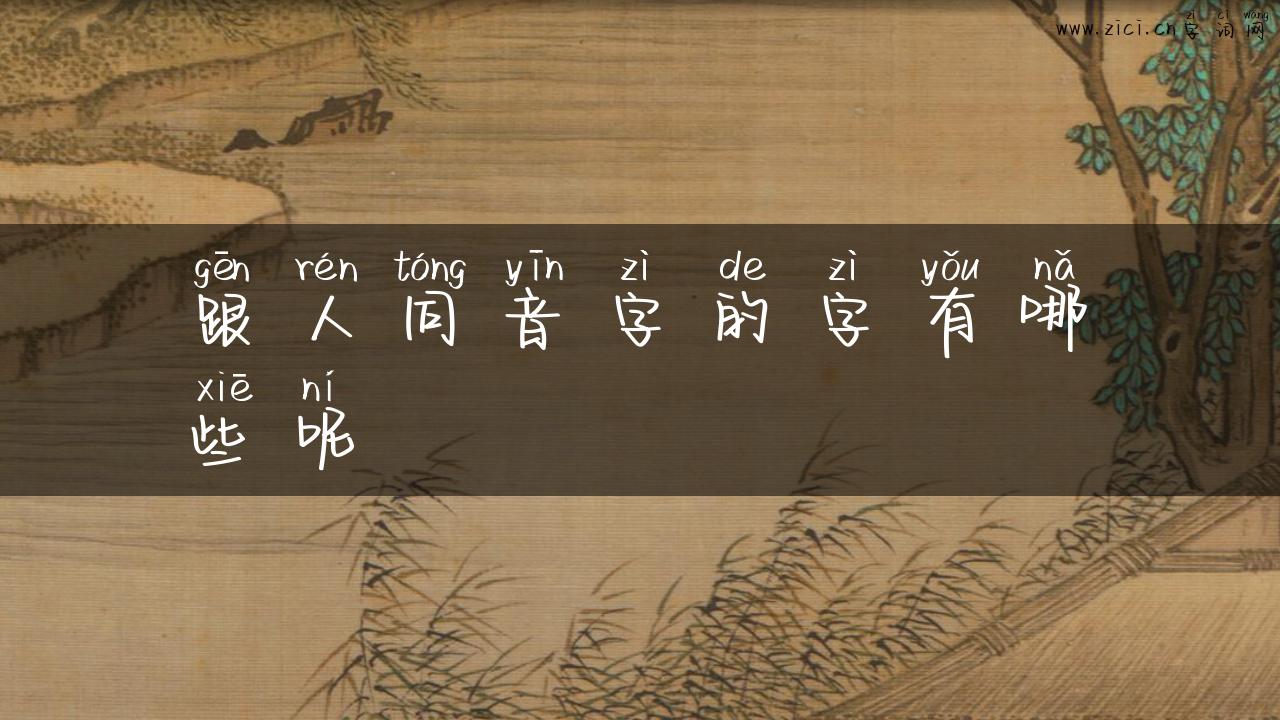 zì cí wǎng
www.zici.cn字词网
gēn rén tóng yīn zì de zì yǒu nǎ
跟人同音字的字有哪
xiē ní
些呢